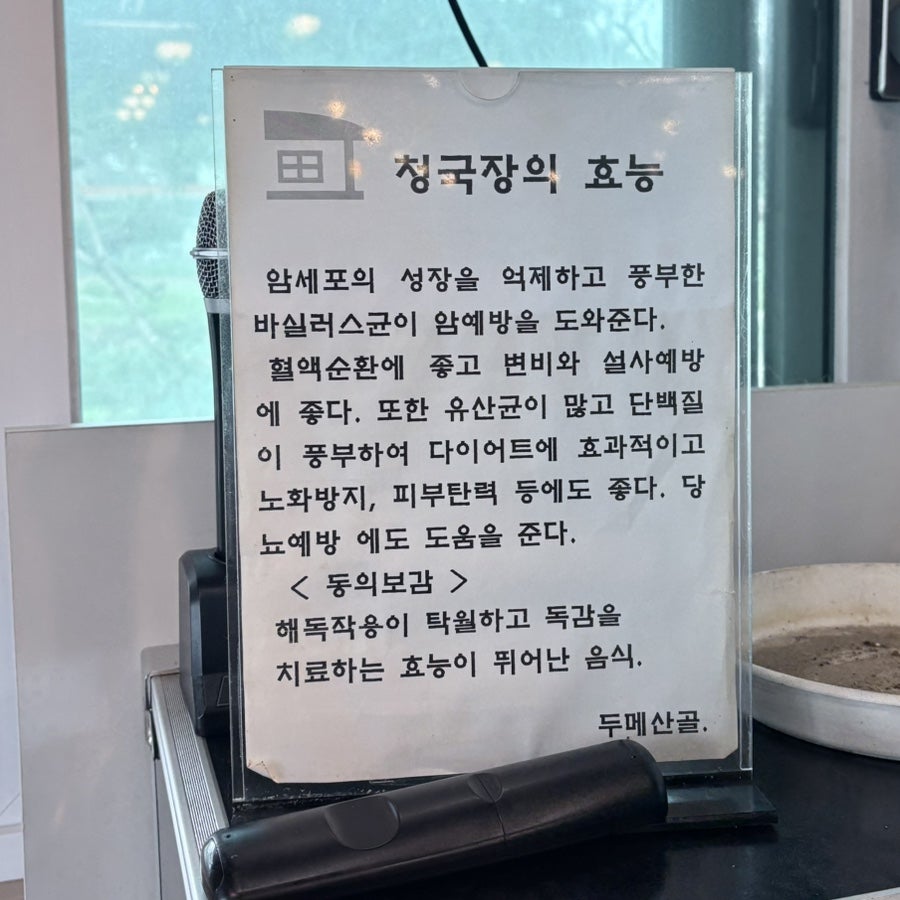 청국장의 효능
암세포의 성장을 억제하고 풍부한
바실러스균이 암예방을 도와준다.
혈액순환에 좋고 변비와 설사예방
에 좋다. 또한 유산균이 많고 단백질
이 풍부하여 다이어트에 효과적이고
노화방지, 피부탄력 등에도 좋다. 당
뇨예방 에도 도움을 준다.
< 동의보감 >
해독작용이 탁월하고 독감을
치료하는 효능이 뛰어난 음식.
두메산골.